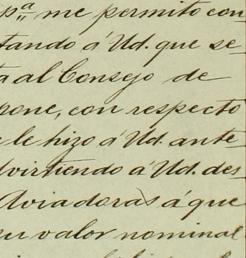 pª me permito con
tando á Ud. que se-
ta al Consejo de
pone, con respecto
le hizo á Ud. ante
dvirtiendo á Ud. des
Aviadoras á que
su valor nominal